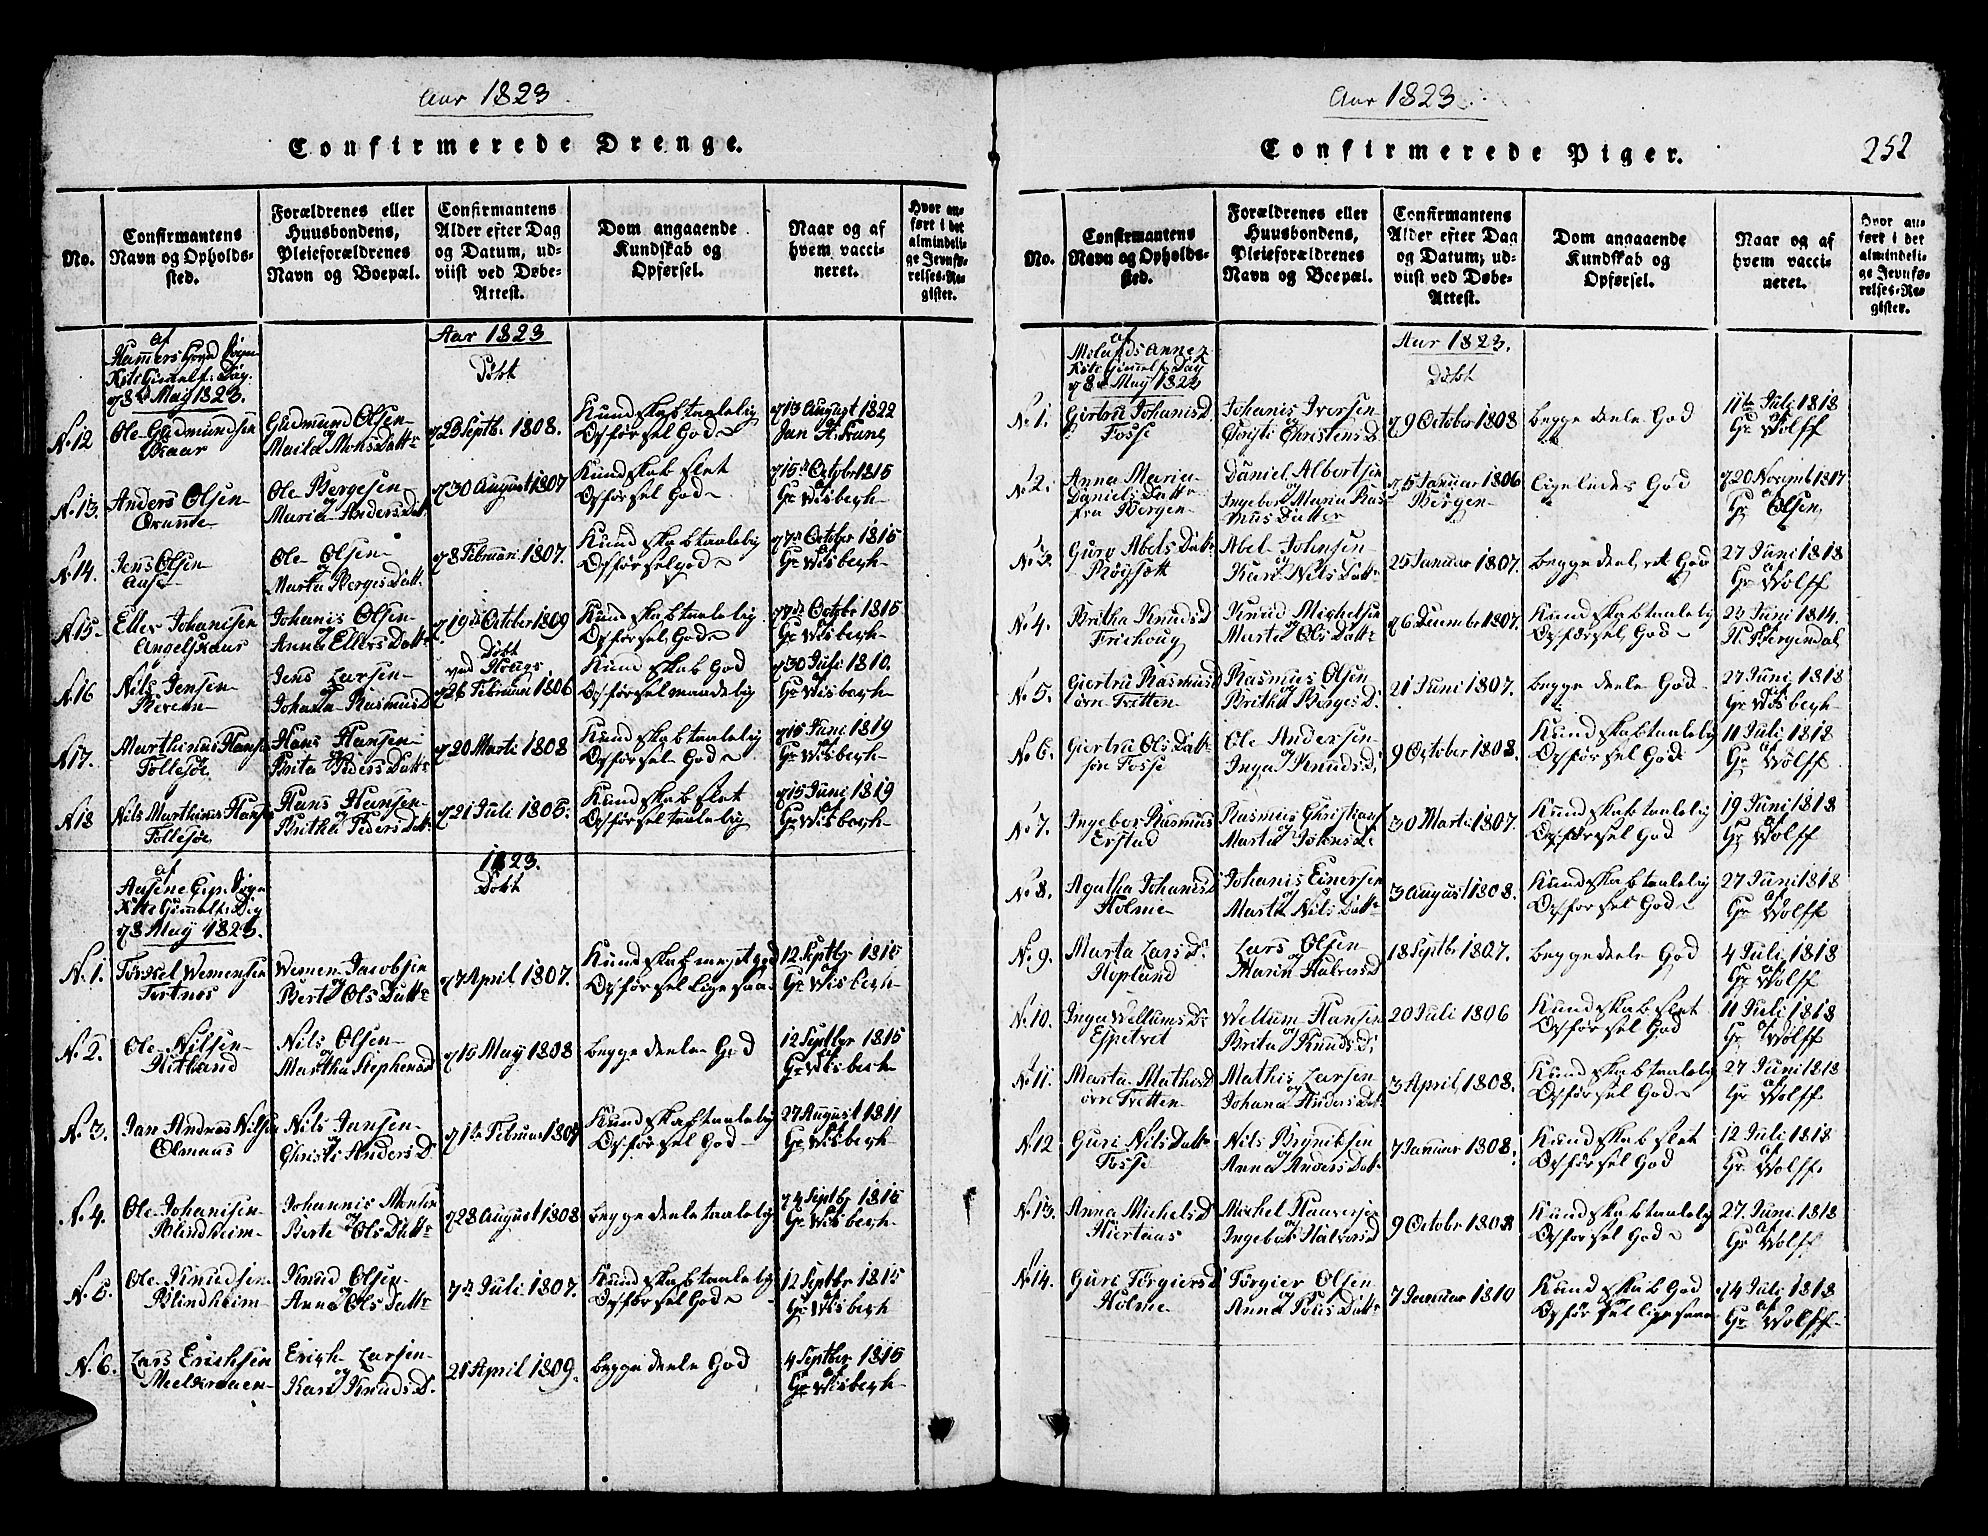 Aar 1823.
Confirmerede Drenge.
No.
Confirmantens
Navn og Opholds-
sted.
Forældrenes eller
Huusbondens,
Pleieforældrenes
Navn og Boepæl.
Confirmantens
Alder efter Dag
og Datum, ud-
viist ved Døbe-
Attest.
Dom angaaende
Kundskab og
Opførsel.
Naar og af
hvem vacci-
neret.
Hvor an-
ført i det
almindeli-
ge Jevnfø-
relses-Re-
gister.
af
Hammers
d 8de May 1823.
Aar 1823
Døbt
No. 12
Ole Gudmundsen
Gudmund Olsen
og
Monsdatt:
d 23 Septb: 1808.
Kundskab taalelig
Opførsel God
d 13 August 1822
No. 13.
Anders Olsen
Ole Bergesen
og
Maria Andersdat:
d 30 August 1807
Kundskab slet
Opførsel God
d 15de Octobr 1815
af
Hr Wisbech
No. 14.
Jens Olsen
Aase
Ole Olsen
og
Marta Bergesdatt:
d 8 Februari 1807.
Kundskab taalelig
Opførsel god
d 7de October 1815
af
Hr Wisbech
No. 15.
Eller Johanisen
Johanis Olsen
og
Anna Ellersdatt:
d 19de October 1809
Kundskab taalelig
Opførsel God
d 7de Octobr 1815
af
Hr Wisbech
No. 16
Nils Jensen
Jens Larsen
og
Johana Rasmusd
Døbt
d 26 Februari 1806
Kundskab God
Opførsel maadelig
d 30 Juli 1810.
af
Hr Wisbech
No. 17.
Marthinus Hansen
Tollesøe
Hans Hansen
og
Brita Pedersdatt:
d 20 Marti 1808
Kundskab taalelig
Opførsel God
d 15 Juni 1819
af
Hr Wisbech
No. 18
Nils Marthinus Hansen
Tollesøe
Hans Hansen
og
Brithe Pedersdatt:
d 21 Juli 1805.
Kundskab slet
Opførsel taalelig
d 15 Juni 1819
af
Hr Wisbech
af
Aasene
d 8 May 1823.
1823.
Døbt
No. 1.
Wemensen
Tortnes
Wemen Jacobsen
og
Berte Olsdatt:
d 7 April 1807.
Kundskab meget god
Opførsel ligesaa
12 Septbr 1815
af
Hr Wisbech
No. 2.
Ole Nilsen
Hitland
Nils Olsen
og
Martha Stephensd
d 15 May 1808
begge deele God
12 Septbr 1815
af
Hr Wisbech
No. 3.
Jan Andreas Nilsen
Olmaas
Nils Jansen
og
Christi Andersd
d 1te Februar 1807
Kundskab taalelig
Opførsel God
27 August 1811
af
Hr Wisbech
No. 4.
Ole Johanisen
Blindheim
Johannis Monsen
og
Berte Olsdatt:
d 28 August 1808
begge deele taalelig
d 4 Septbr 1815
af
Hr Wisbech
No. 5.
Ole Knudsen
Blindheim
Knud Olsen
og
Anna Olsdatt:
7de Juli 1807.
Kundskab taalelig
Opførsel God
12 Septbr 1815
af
Hr Wisbech
No. 6.
Lars Erichsen
Erich Larsen
og
Kari Knudsd.
21 April 1809.
begge deele God
4 Septbr 1815
af
Hr Wisbech
Aar 1823.
Confirmerede Piger.
252
No.
Confirmantens
Navn og Opholds-
sted.
Forældrenes eller
Huusbondens,
Pleieforældrenes
Navn og Boepæl.
Confirmantens
Alder efter Dag
og Datum, ud-
viist ved Døbe-
Attest.
Dom angaaende
Kundskab og
Opførsel.
Naar og af
hvem vacci-
neret.
Hvor an-
ført i det
almindeli-
ge Jevnfø-
relses-Re-
gister.
af
d 8de May 1823
Aar 1823.
Døbt
No. 1.
Giertru Johanisd.
Fosse
Johanis Iversen
og
Christi Christensd
d 9 October 1808
begge deele God
11te Juli 1818
af
Hr Wolff
No. 2.
Anna Maria
Danielsdatt:
fra Bergen
Daniel Albertsen
og
Ingebor Maria Ras-
mus Datter
d 5 Januar 1806
Bergen
Ligeledes God
d 20 Novemb 1817
af
Hr Olsen
No. 3.
Guro Abelsdatt:
Abel Johnsen
og
Kari Nilsdatt:
25 Januar 1807.
27 Juni 1818
af
Hr Wolff
No. 4.
Britha Knudsd
Knud Michelsen
og
Marta Olsdatt:
d 6 Decembr 1807.
Kundskab taalelig
Opførsel God
23 Juni 1814.
af
No. 5.
Giertru Rasmusd
øvre Tvetten
Rasmus Olsen
og
Britha Bergesd:
21 Juni 1807.
begge deele God
27 Juni 1818
af
Hr Wisbech
No. 6.
Giertru Olsdatt:
Fosse
Ole Andersen
og
Inga Knudsd,
9 October 1808.
Kundskab taalelig
Opførsel God
11 Juli 1818
af
Hr Wolff
No. 7.
Ingebor Rasmus
Erstad
Rasmus Christians
og
Marta
30 Marti 1807.
Kundskab taalelig
Opførsel God
19 Juni 1818
af
Hr Wolff
No. 8.
Agatha Johanisd
Holme
Johanis Einersen
og
Marta Nilsdatt:
3 August 1808.
Kundskab taalelig
Opførsel God
27 Juni 1818
af
Hr Wolff
No. 9
Marta Larsd:
Hopland
Lars Olsen
og
Marin Halvorsd
18 Septbr 1807.
begge deele God
4 Juli 1818
af
Hr Wolff
No. 10.
Inga Wellumsd:
Espetvet
Wellum Hansen
og
Brita Knudsd,
20 Juli 1806
Kundskab slet
Opførsel God
11 Juli 1818
af
Hr Wolff
No. 11.
Marta Mathisd
øvre Tvetten
Mathis Larsen
og
Johana Andersdat:
3 April 1808.
Kundskab taalelig
Opførsel God
27 Juni 1818
af
Hr Wolff
No. 12
Guri Nilsdatt:
Fosse
Nils Brynildsen
og
Anna Andersdat:
7 Januar 1808.
Kundskab slet
Opførsel God
12 Juli 1818
af
Hr Wolff
No. 13.
Anna Michelsd
Hiertaas
Michel
og
Ingebor Halvorsd
9 Octobr 1808
Kundskab taalelig
Opførsel God
27. Juni 1818
af
Hr Wolff
No. 14.
Guri Torgiersd
Holme
Torgier Olsen
og
Anna
7 Januar 1810
Kundskab God
Opførsel ligesaa
d 4 Juli 1818
af
Hr Wolff